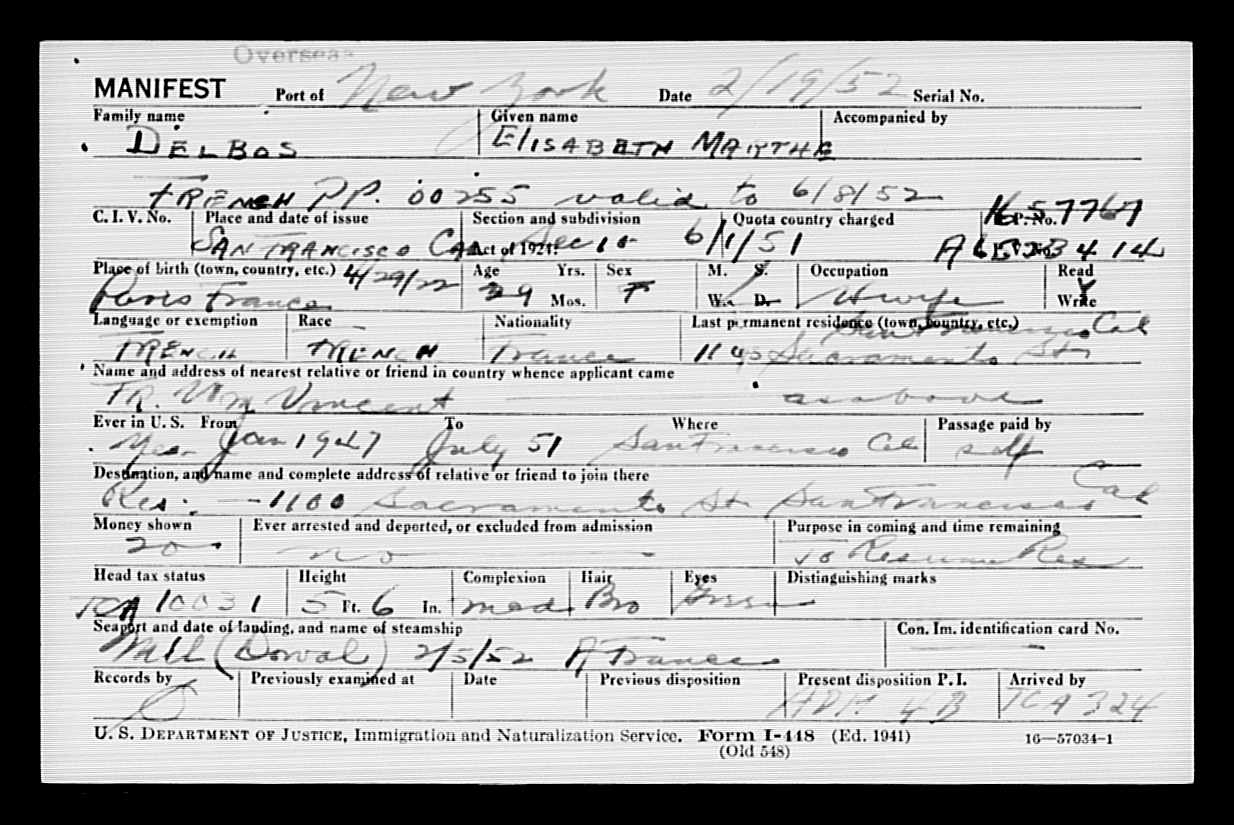 Overseas
MANIFEST Port of New York Date 2/19/52 Serial No.
Family name Given name Accompanied by
DELBOS ELISABETH MARTHE
FRENCH PP. 00255 valid to 6/8/52
C. I. V. No. Place and date of issue Section and subdivision Quota country charged R.P. No. 1657767
SAN FRANCISCO CAL Act of 1924: Sec 6/1/51
Place of birth (town, country, etc.) 4/29/22 Age Yrs. Sex M. S. Occupation Read
Paris France 29 Mos. F W. D. Hwife Write
Language or exemption Race Nationality Last permanent residence (town, country, etc.) San Francisco Cal
FRENCH FRENCH France Sacramento St
Name and address of nearest relative or friend in country whence applicant came
FR. Wm Vincent as above
Ever in U. S. From To Where Passage paid by
Yes. Jan 1947 July 51 San Francisco Cal self
Destination, and name and complete address of relative or friend to join there
Res: - 1100 Sacramento St San Francisco Cal
Money shown Ever arrested and deported, or excluded from admission Purpose in coming and time remaining
20 no To Resume Res
Head tax status Height Complexion Hair Eyes Distinguishing marks
TCA 10031 5 Ft. 6 In. med Bro Green
Seaport and date of landing, and name of steamship Con. Im. identification card No.
Mtl (Dorval) 2/5/52 A France
Records by Previously examined at Date Previous disposition Present disposition P. I. Arrived by
ADM 4B TCA 324
U. S. DEPARTMENT OF JUSTICE, Immigration and Naturalization Service. Form I-448 (Ed. 1941) 16—57034-1
(Old 548)